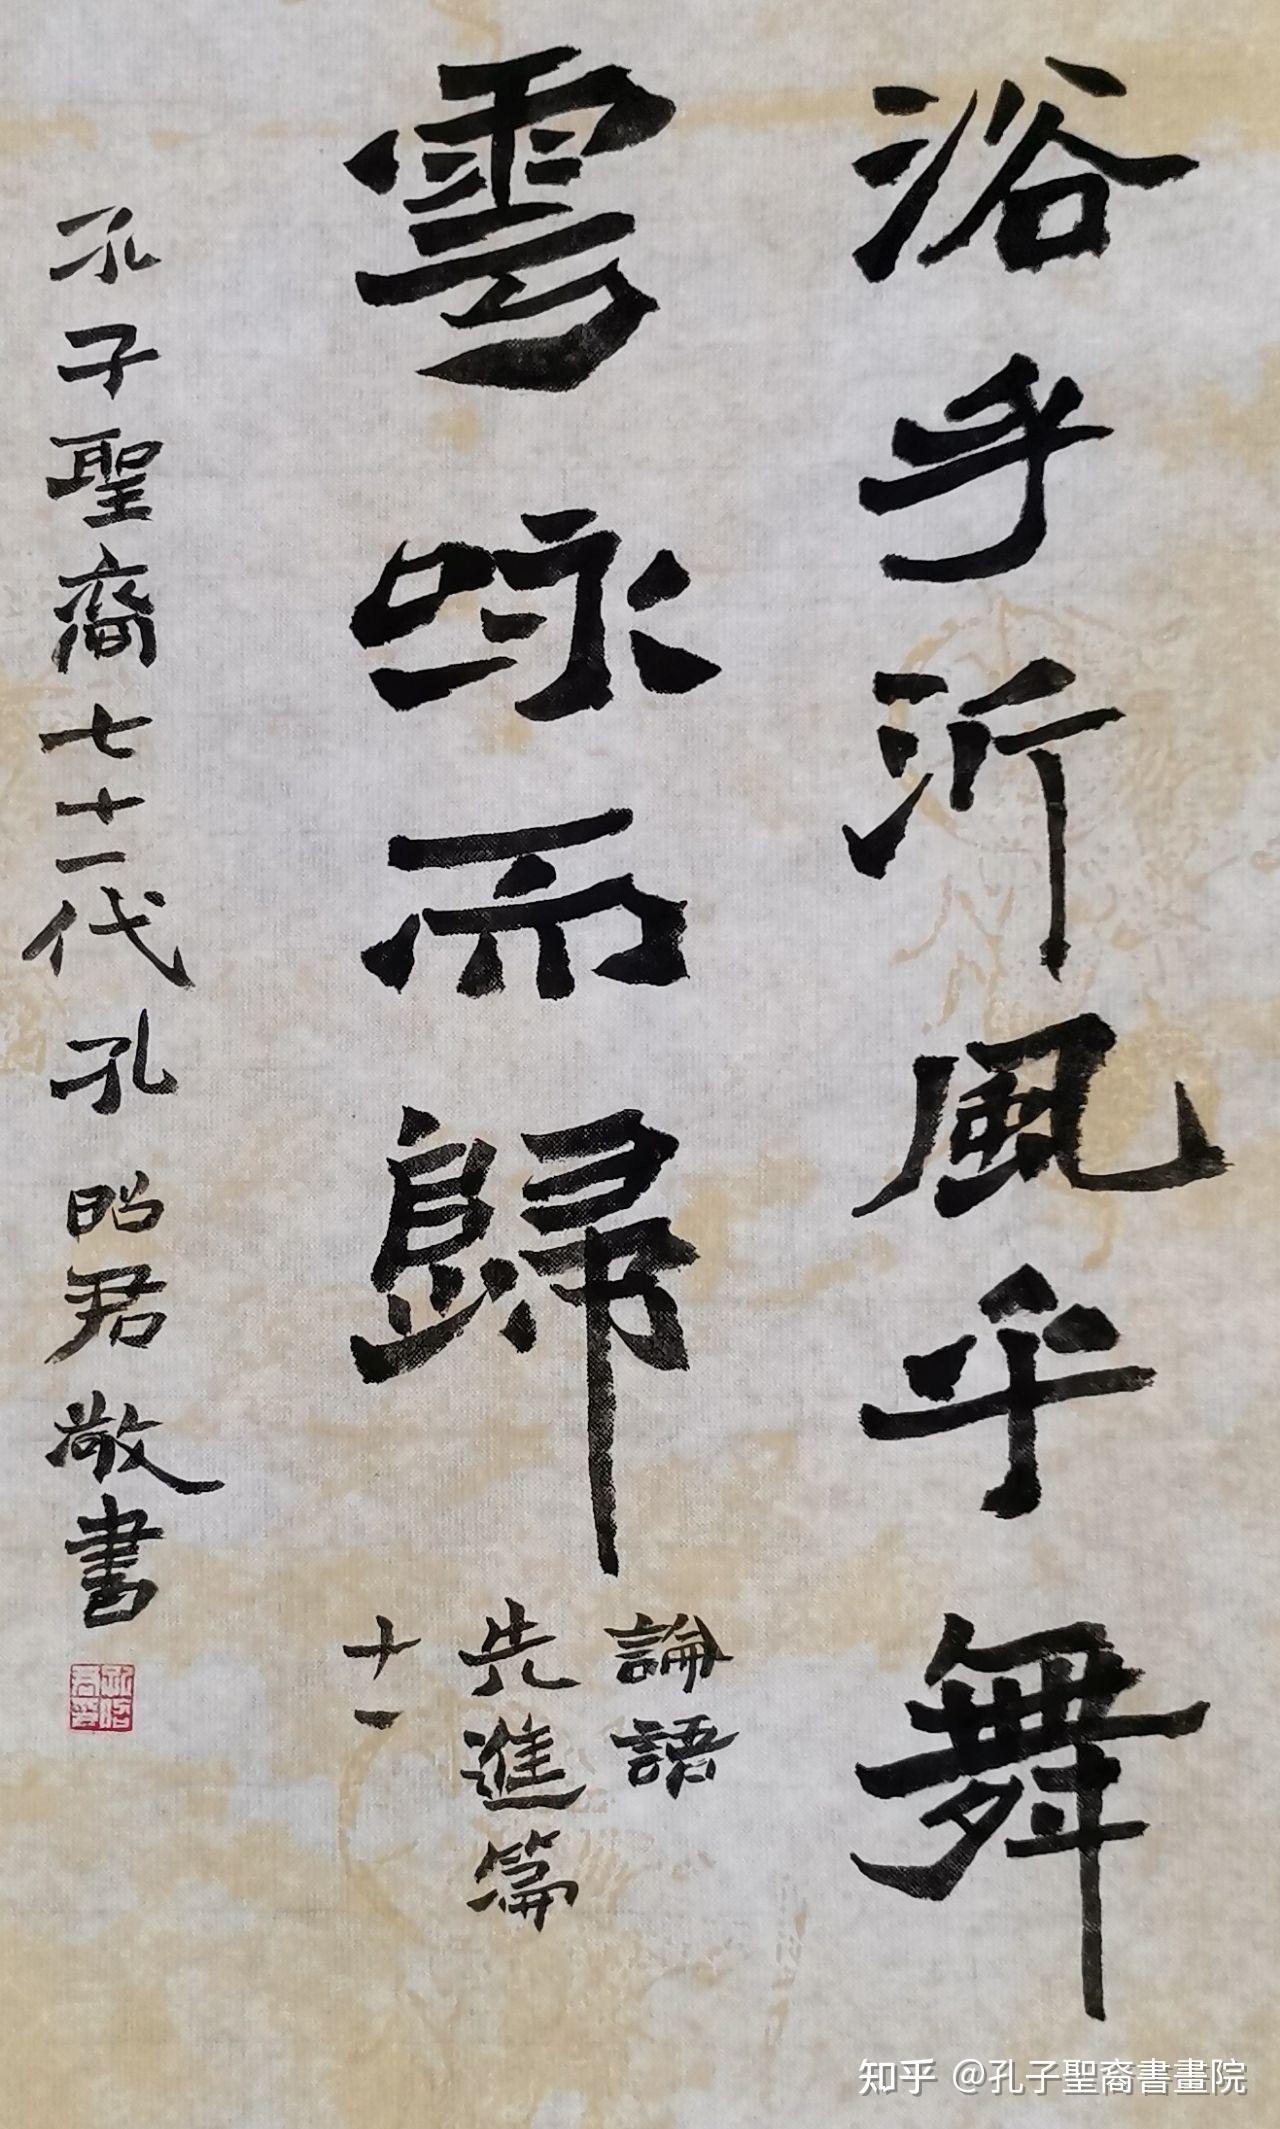 浴乎沂風乎舞
雩咏而歸
論語
先進篇
十一
孔子聖裔七十一代孔昭君敬書
知乎 @孔子聖裔書畫院